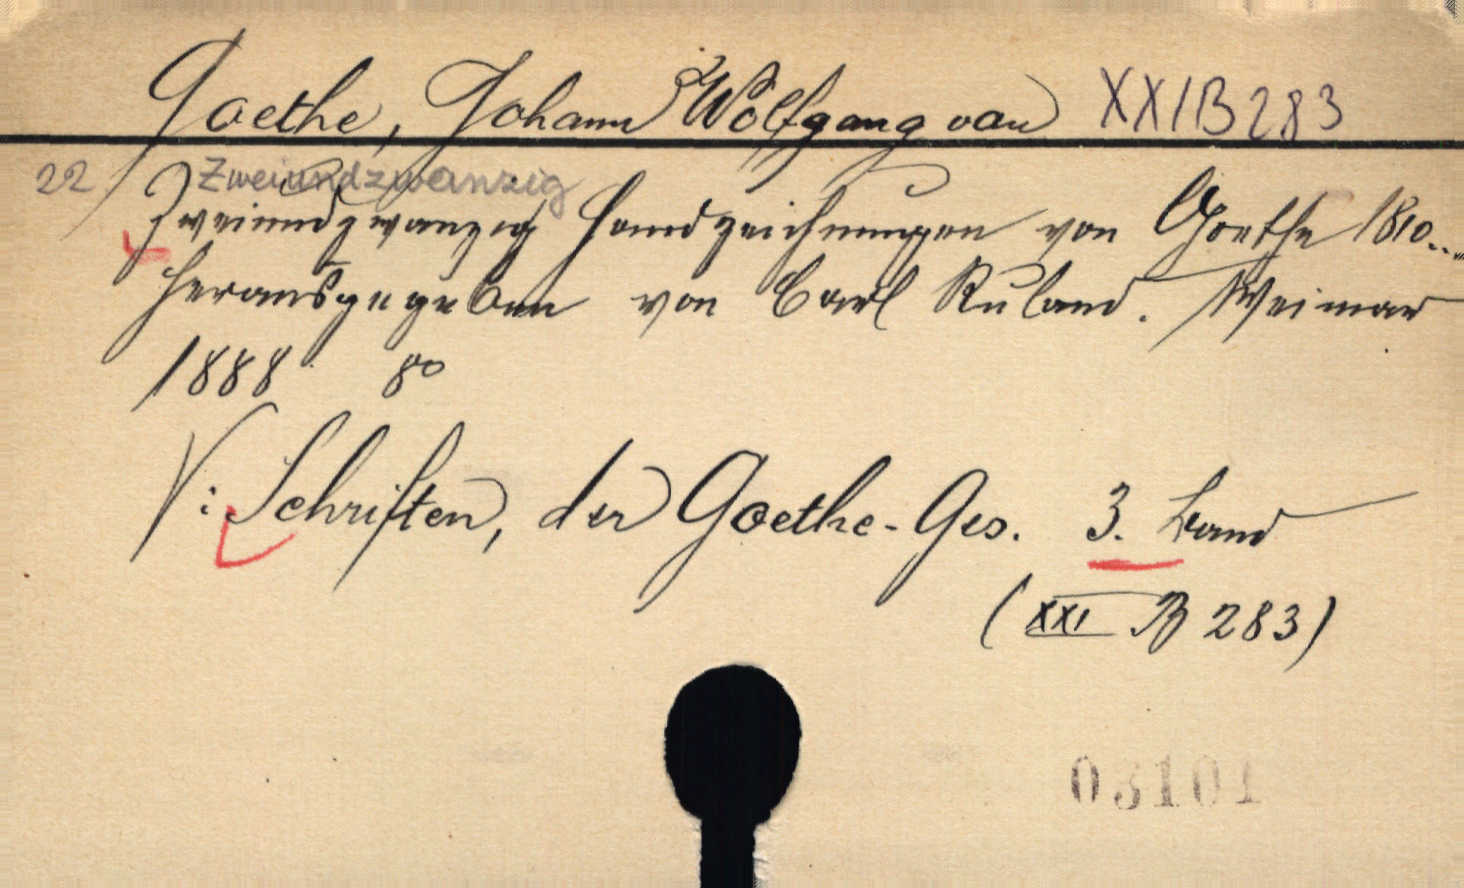 Goethe, Johann Wolfgang von XXI B 283
22 Zweiundzwanzig
Zweiundzwanzig Handzeichnungen von Goethe 1810...
herausgegeben von Carl Ruland. Weimar
1888 8°
V: Schriften, der Goethe-Ges. 3. Band
(XXI B 283)
03101